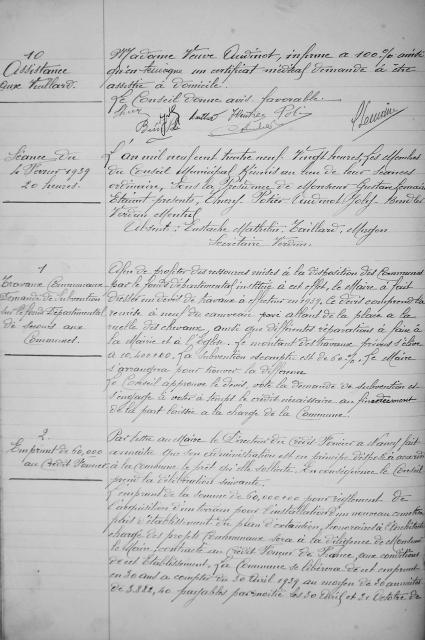 10
Assistance
aux Vieillards.
Madame Veuve Audinot, infirme à 100% ainsi
qu'en témoigne un certificat médical demande à être
assistée à domicile.
Le Conseil donne avis favorable.
Séance du
Février 1939
20 heures.
L'an mil neuf cent trente neuf, vingt heures, les Membres
du Conseil Municipal Réunis au lieu de leur séances
ordinaire, sous la Présidence de Monsieur Gustave Lemoine
Etaient présents,
Verdun
Absent : Eustache Mathelin, Taillard, Magon
Secrétaire Verdun.
1
Travaux Communaux
Demande de Subvention
sur le fonds Départemental
de secours aux
Communes.
Afin de profiter des ressources mises à la disposition des Communes
par le fonds départemental institué à cet effet, le Maire a fait
dresser un devis de travaux à effectuer en 1939. Ce devis comprend la
remise à neuf du caniveau pavé allant de la place à la
ruelle des chevaux, ainsi que différentes réparations à faire à
la Mairie et à l'église. Le montant des travaux prévus s'élève
à La subvention escomptée est de 60%. Le Maire
s'arrangera pour trouver la différence
Le Conseil approuve le devis, vote la demande de subvention et
s'engage à voter à temps le crédit nécessaire au financement
de la part laissée à la charge de la Commune.
2
Emprunt de 60,000
au Crédit Foncier
Par lettre au Maire le Directeur du Crédit Foncier à Nancy fait
connaître que son administration est en principe disposée à accorder
à la commune le prêt qu'elle sollicite. En conséquence le Conseil
prend la délibération suivante.
L'emprunt de la somme de 60,000 00 pour règlement de
l'acquisition d'un terrain pour l'installation d'un nouveau cimetière
plus d'établissement du plan d'extension, honoraires à l'architecte
chargé des projets Communaux sera à la diligence de Monsieur
le Maire, contracté au Crédit Foncier de France, aux conditions
de cet établissement. La Commune se libérera de cet emprunt
en 30 ans à compter du 30 Avril 1939, au moyen de 30 annuités
de 3.882,40 payables par moitié les 30 Avril et 31 Octobre de